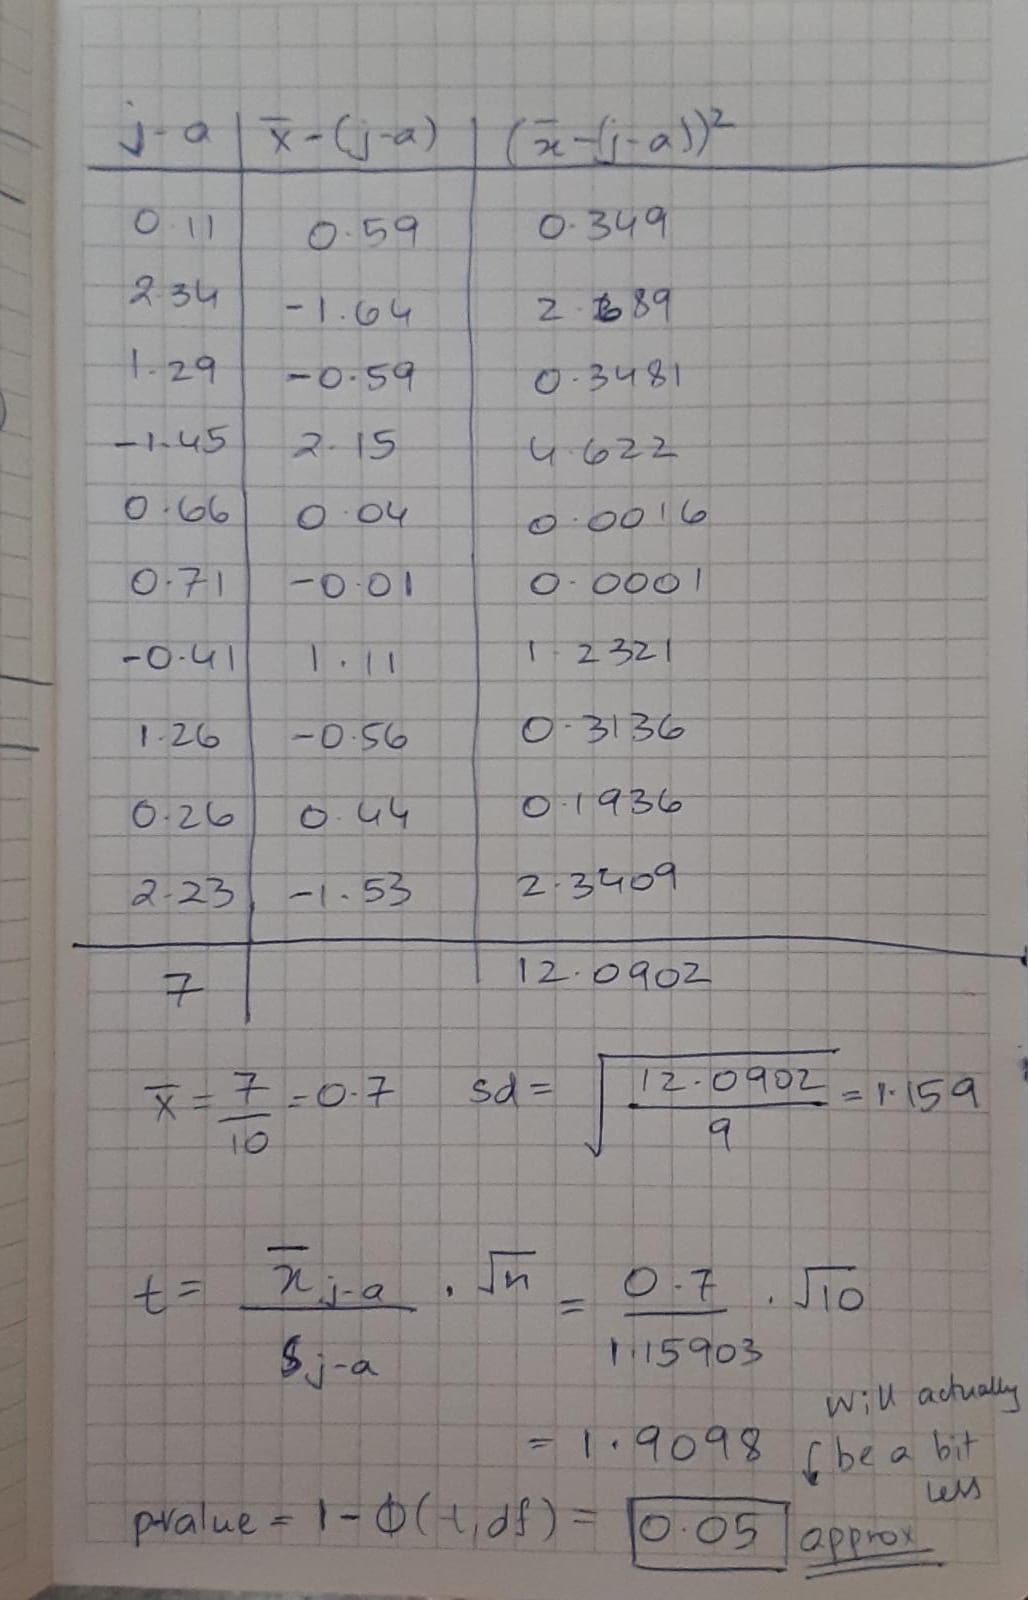 j-a | x̄-(j-a) | (x̄-(j-a))²
0.11 0.59 0.349
2.34 -1.64 2.689
1.29 -0.59 0.3481
-1.45 2.15 4.622
0.66 0.04 0.0016
0.71 -0.01 0.0001
-0.41 1.11 1.2321
1.26 -0.56 0.3136
0.26 0.44 0.1936
2.23 -1.53 2.3409
7 12.0902
x̄ = 7/10 = 0.7 sd = √(12.0902/9) = 1.159
t = x̄ j-a / s j-a . √n = 0.7/1.15903 . √10
= 1.9098
will actually
be a bit
less
p-value = 1-Φ(t,df) = 0.05 approx